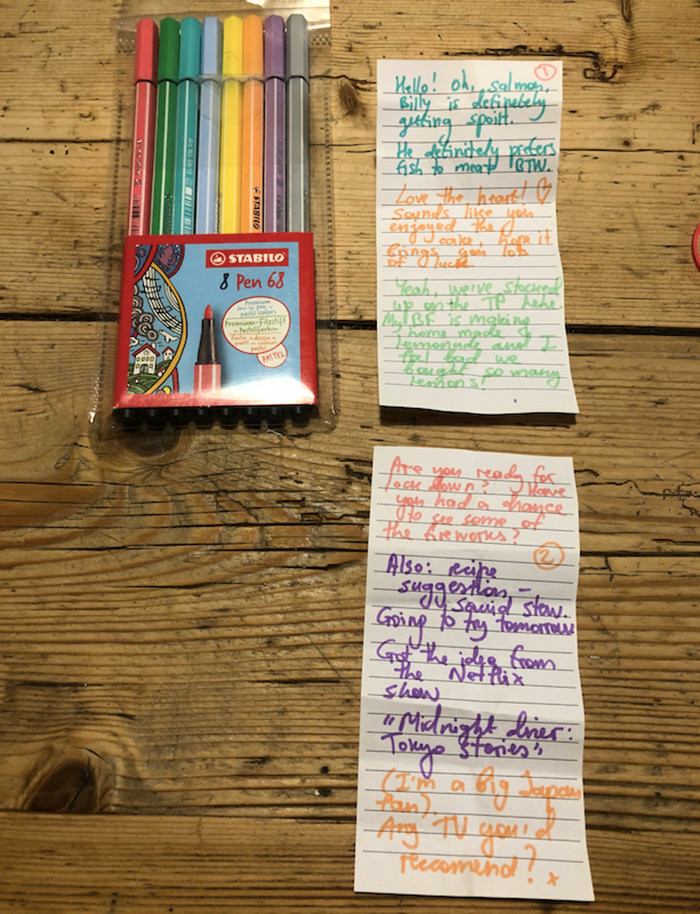 STABILO
8 Pen 68
Premium
pastel colors
Premium-Filzstift
Pastellfarben
PASTEL
STABILO
1
Hello! Oh, salmon,
Billy is definetely
getting spoilt.
He definitely prefers
fish to meat BTW.
Love the heart! ♡
Sounds like you
enjoyed the
cake, hope it
brings you lots
of luck.
Yeah, we've stocked
up on the TP here.
My BF is making
home made
lemonade and I
feel bad we
bought so many
lemons!
Are you ready for
lock down? Have
you had a chance
to see some of
the fireworks?
2
Also: recipe
suggestion –
squid stew.
Going to try tomorrow
Got the idea from
the Netflix
show
"Midnight diner:
Tokyo Stories"
(I'm a big Japan
fan).
Any TV you'd
reccomend? x